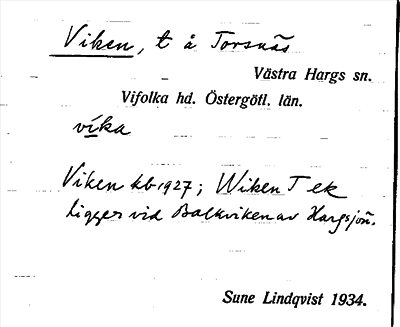 Viken, t å Torsnäs
Västra Hargs sn.
Vifolka hd. Östergötl. län.
vika
Viken kb 1927; Wiken T ek
ligger vid Balkviken av Hargsjön.
Sune Lindqvist 1934.